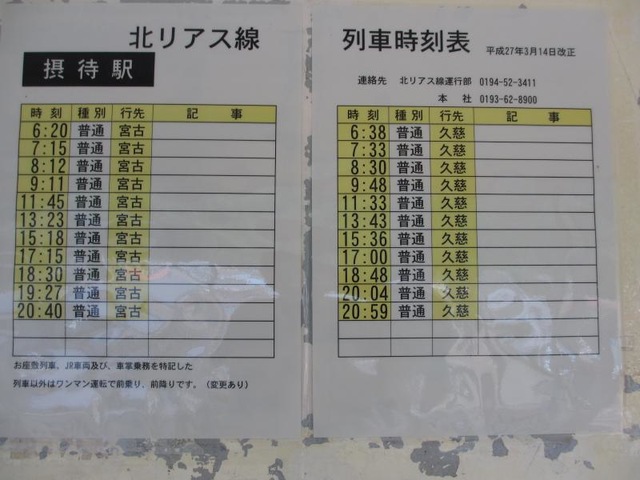 北リアス線
摂待駅
時刻 種別 行先 記事
6:20 普通 宮古
7:15 普通 宮古
8:12 普通 宮古
9:11 普通 宮古
11:45 普通 宮古
13:23 普通 宮古
15:18 普通 宮古
17:15 普通 宮古
18:30 普通 宮古
19:27 普通 宮古
20:40 普通 宮古
お座敷列車、JR車両及び、車掌乗務を特記した
列車以外はワンマン運転で前乗り、前降りです。（変更あり）
列車時刻表 平成27年3月14日改正
連絡先 北リアス線運行部 0194-52-3411
本社 0193-62-8900
時刻 種別 行先 記事
6:38 普通 久慈
7:33 普通 久慈
8:30 普通 久慈
9:48 普通 久慈
11:33 普通 久慈
13:43 普通 久慈
15:36 普通 久慈
17:00 普通 久慈
18:48 普通 久慈
20:04 普通 久慈
20:59 普通 久慈